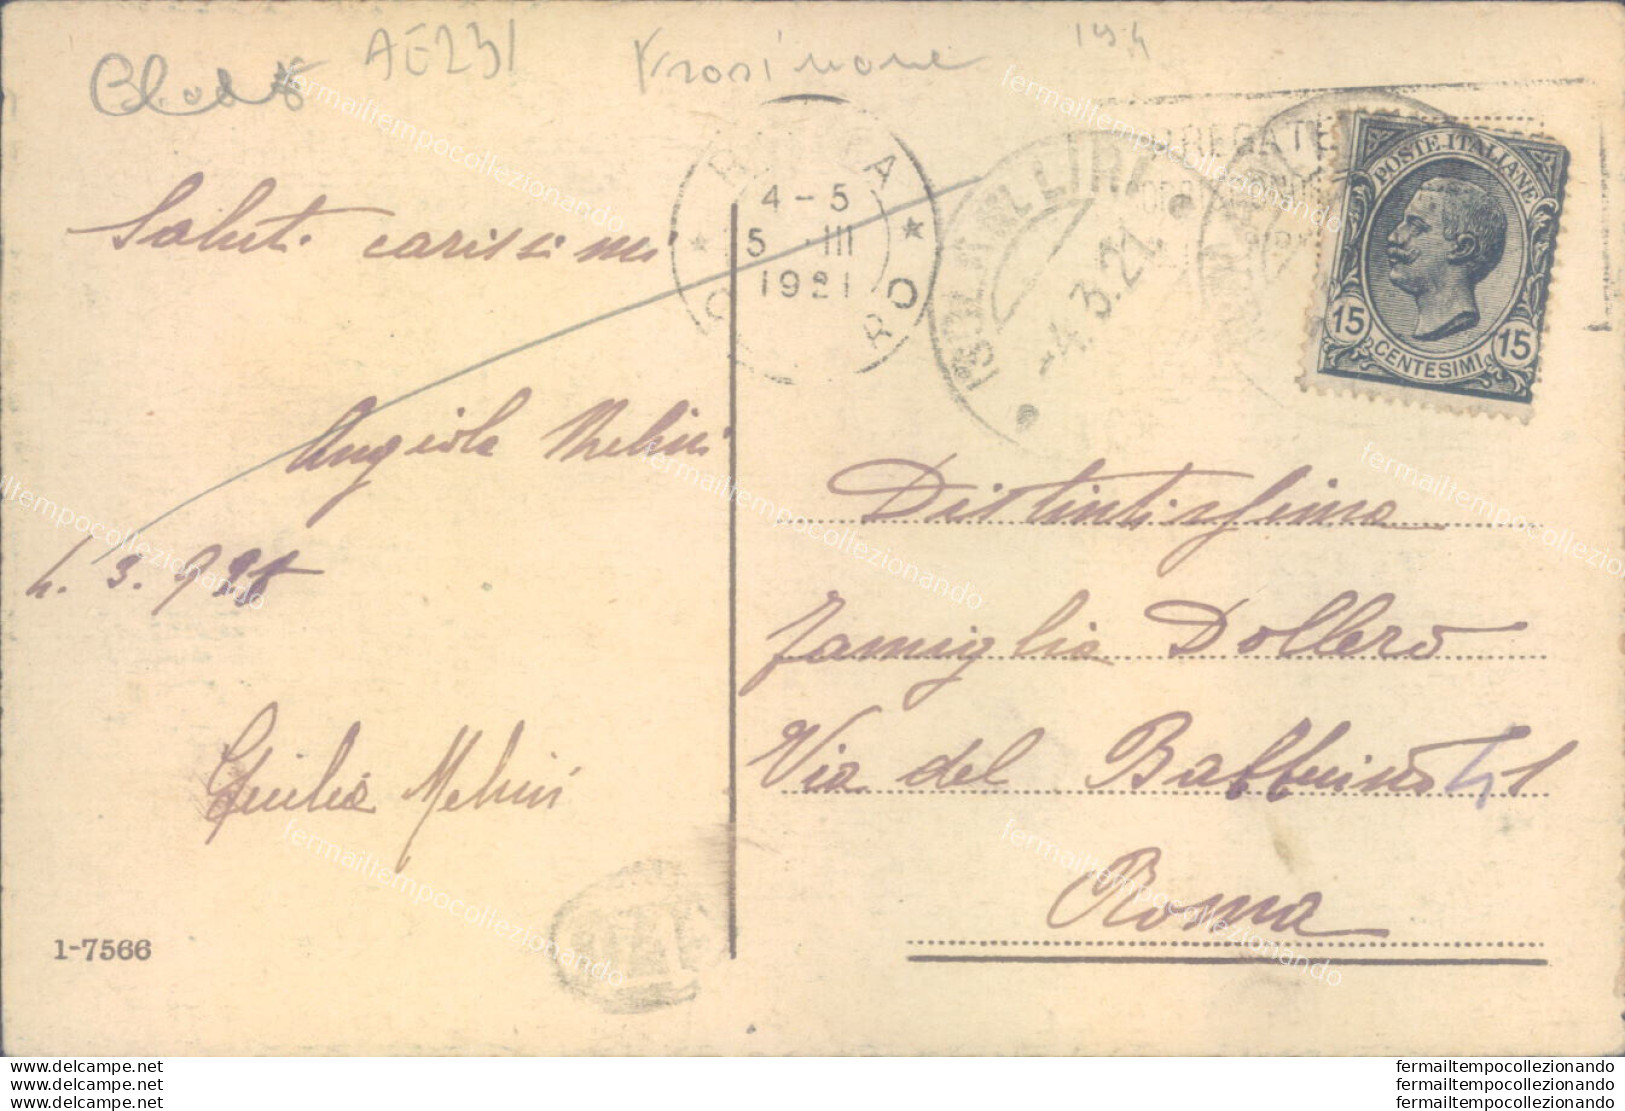 AE231
Frosinone
194
ROMA
4-5
5 -III
1921
ISOLA DEL LIRI
-4.3.21
POSTE ITALIANE
15 15
CENTESIMI
Saluti carissimi
Angiola Melini
4. 3. 921
Giulia Melini
Distintissima
Famiglia Dollero
Via del Babbuino 41
Roma
1-7566
fermailtempocollezionando
fermailtempocollezionando
fermailtempocollezionando
www.delcampe.net
www.delcampe.net
www.delcampe.net
fermailtempocollezionando
fermailtempocollezionando
fermailtempocollezionando